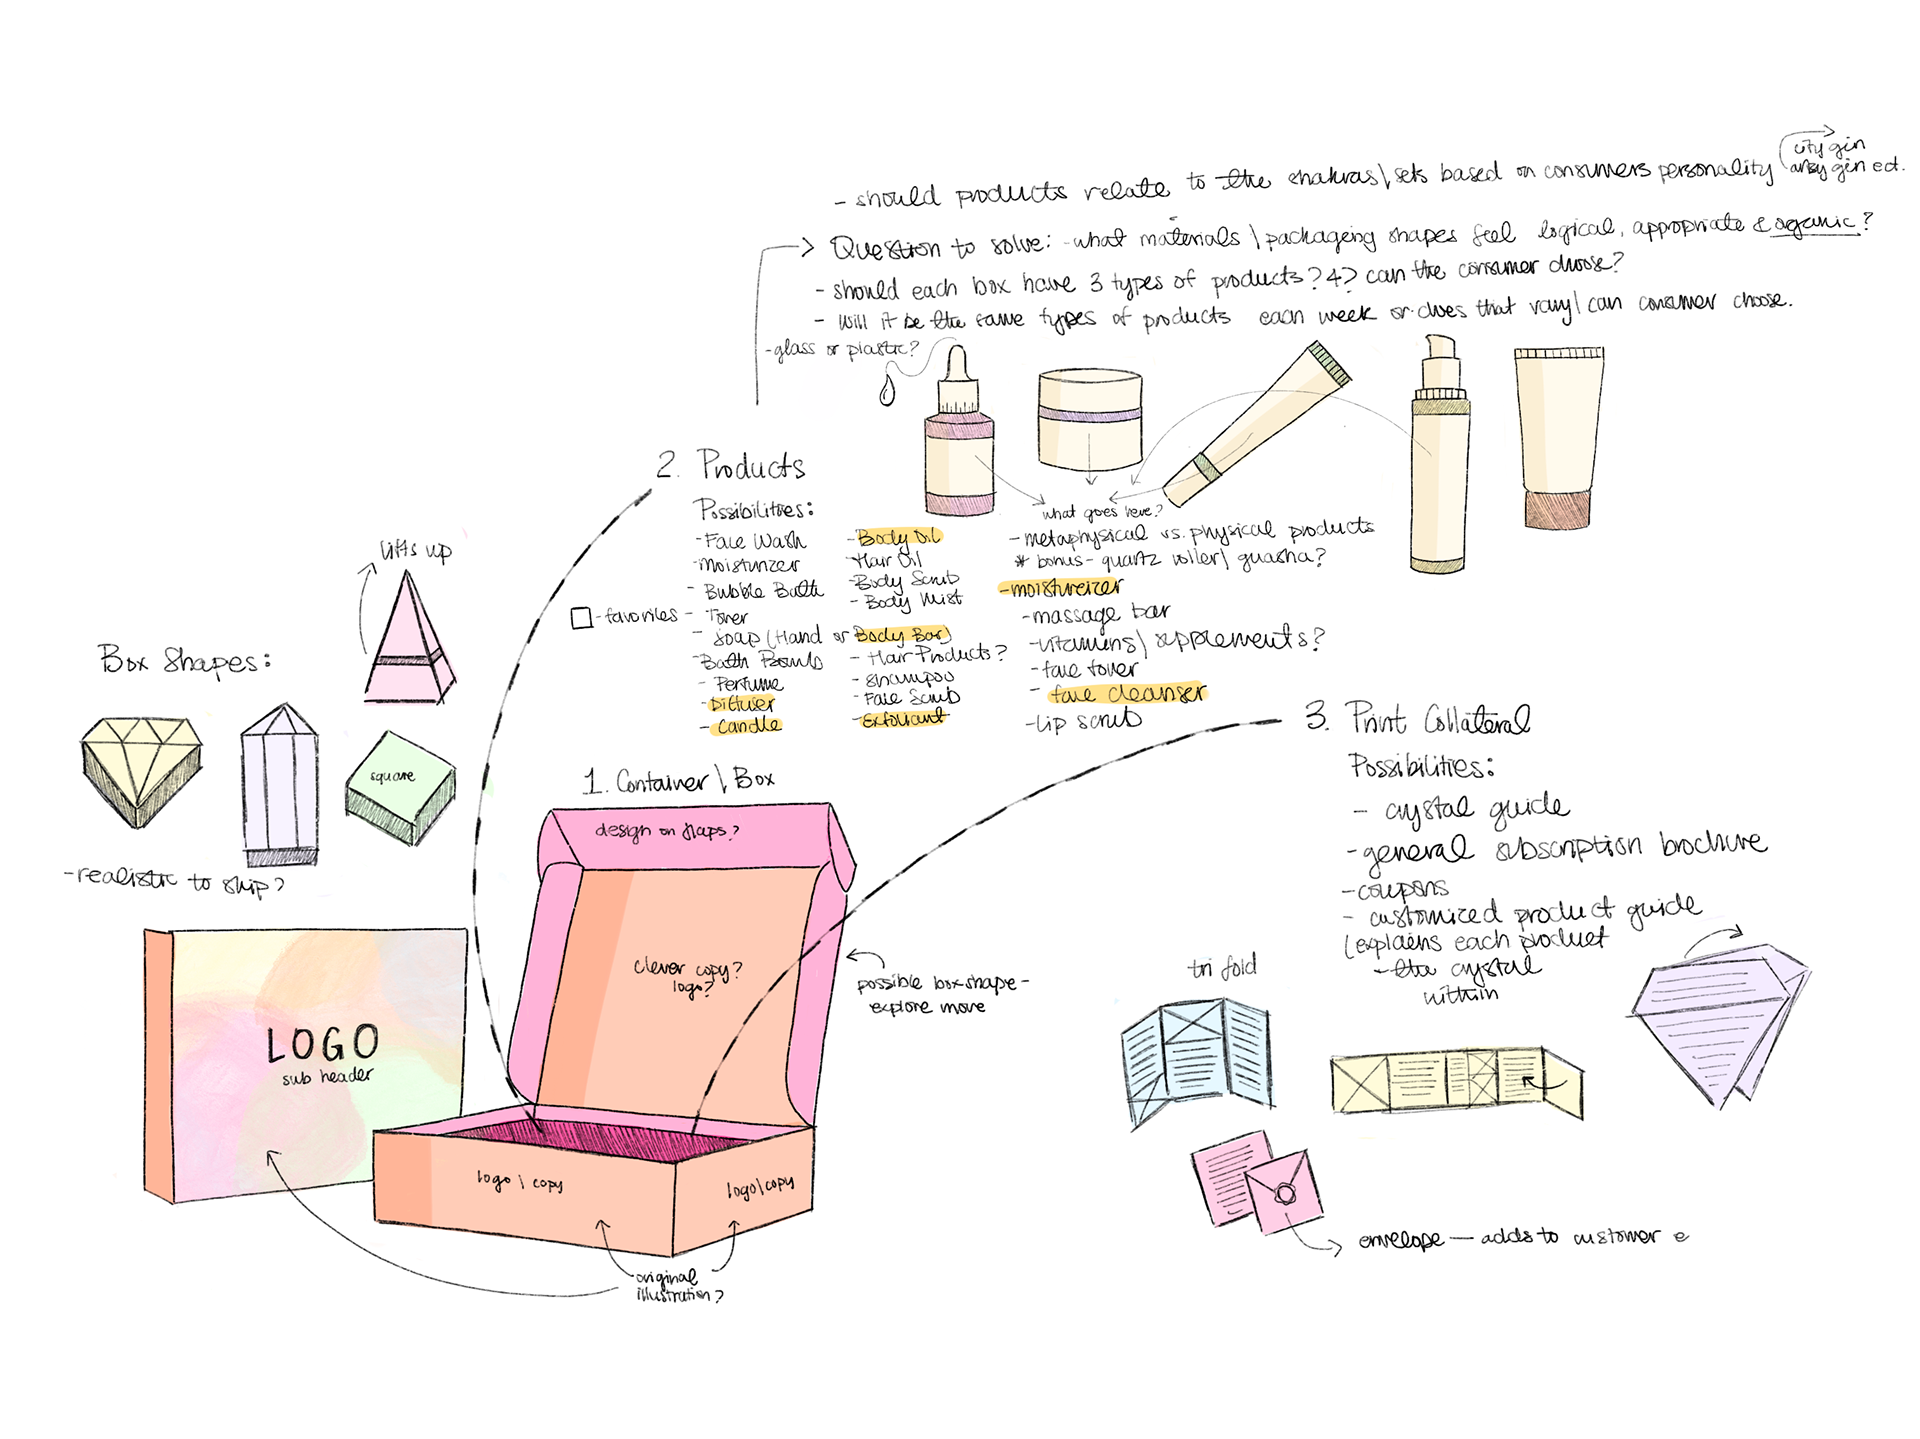 - should products relate to the chakras\sets based on consumers personality
city gin
gin ect.
Question to solve: -what materials \ packageing shapes feel logical, appropriate & organic?
- should each box have 3 types of products? 4? can the consumer choose?
- Will it be the same types of products each week or does that vary/can consumer choose.
-glass or plastic?
2. Products
Possibilities:
- Face Wash
- Moisturizer
- Bubble Bath
- Toner
- Soap (Hand or Body Bar)
- Bath Bomb
- Perfume
- Diffuser
- Candle
-favorites
- Body Oil
- Hair Oil
- Body Scrub
- Body Mist
- Hair Products?
- Shampoo
- Face Scrub
- Exfoliant
what goes here?
- metaphysical vs. physical products
* bonus - quartz roller/ guasha?
-moistureizer
- massage bar
- vitamins\ supplements?
- face toner
- face cleanser
- Lip scrub
lifts up
Box Shapes:
square
-realistic to ship?
1. Container \ Box
design on flaps?
clever copy?
logo?
possible box shape -
explore more
LOGO
sub header
logo \ copy
logo\copy
original
illustration?
3. Print Collateral
Possibilities:
- crystal guide
- general subscription brochure
- coupons
- customized product guide
(explains each product
- the crystal
within
tri fold
envelope — adds to customer e